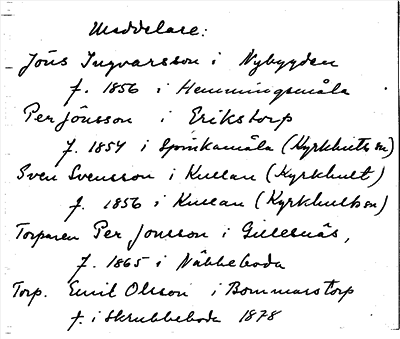 Meddelare:
Jöns Ingvarsson i Nybygden
f. 1856 i Hemmingsmåla
Per Jönsson i Erikstorp
f. 1854 i Spinkamåla (Kyrkhults sn)
Sven Svensson i Kullan (Kyrkhult)
f. 1856 i Kullan (Kyrkhults sn)
Torparen Per Jonsson i Gillesnäs,
f. 1865 i Näbbeboda
Torp. Emil Olsson i Bommarstorp
f. i Skrubbeboda 1878